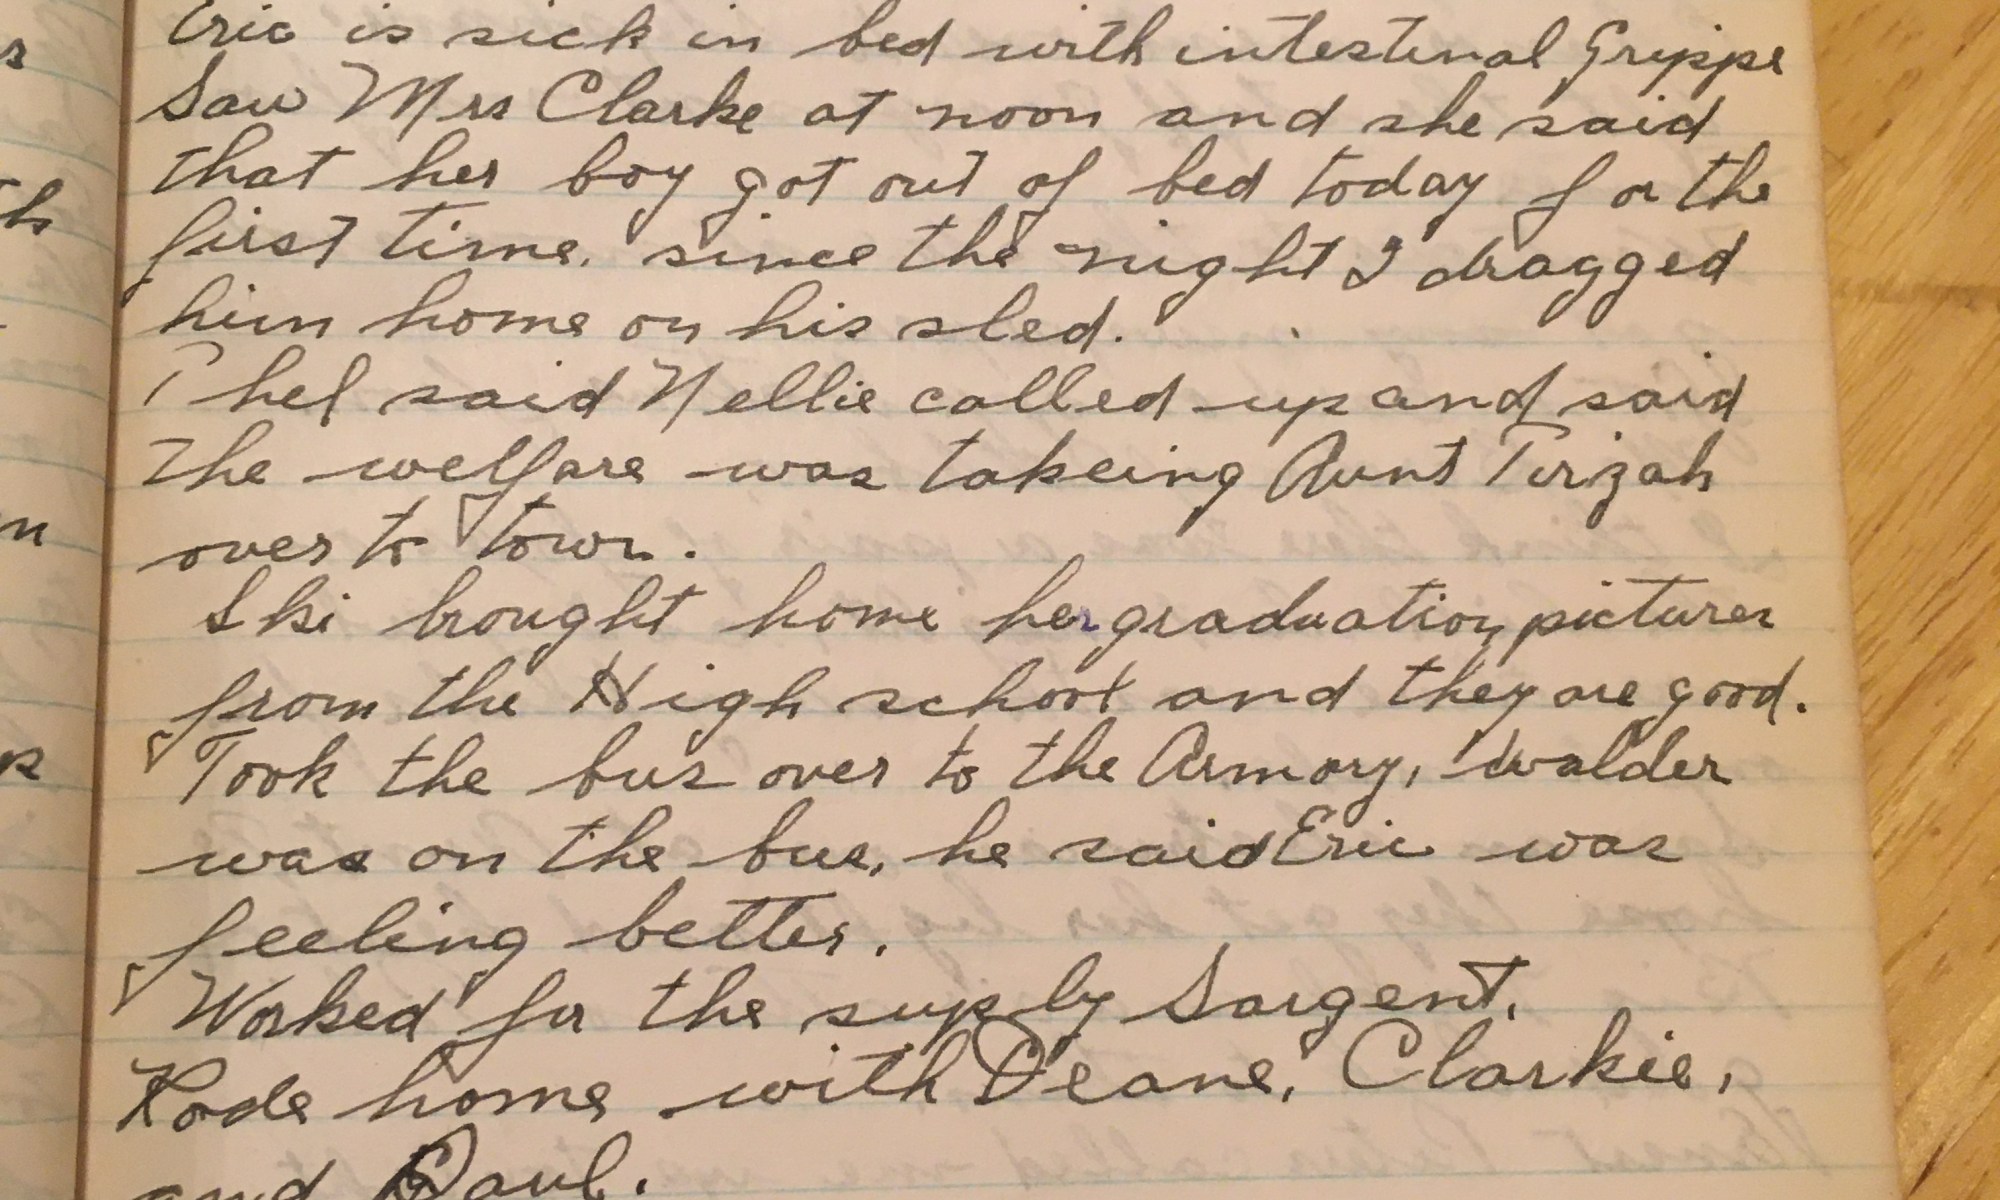 Eric is sick in bed with intestinal Grippe
Saw Mrs Clarke at noon and she said
that her boy got out of bed today for the
first time. since the night I dragged
him home on his sled.
Thel said Nellie called up and said
The welfare was takeing Aunt Tirzah
over to town.
Ski brought home her graduation pictures
from the High school and they are good.
Took the bus over to the Armory, Walder
was on the bus, he said Eric was
feeling better.
Worked for the supply Sargent.
Rode home with Deane, Clarkie,
and Paul.